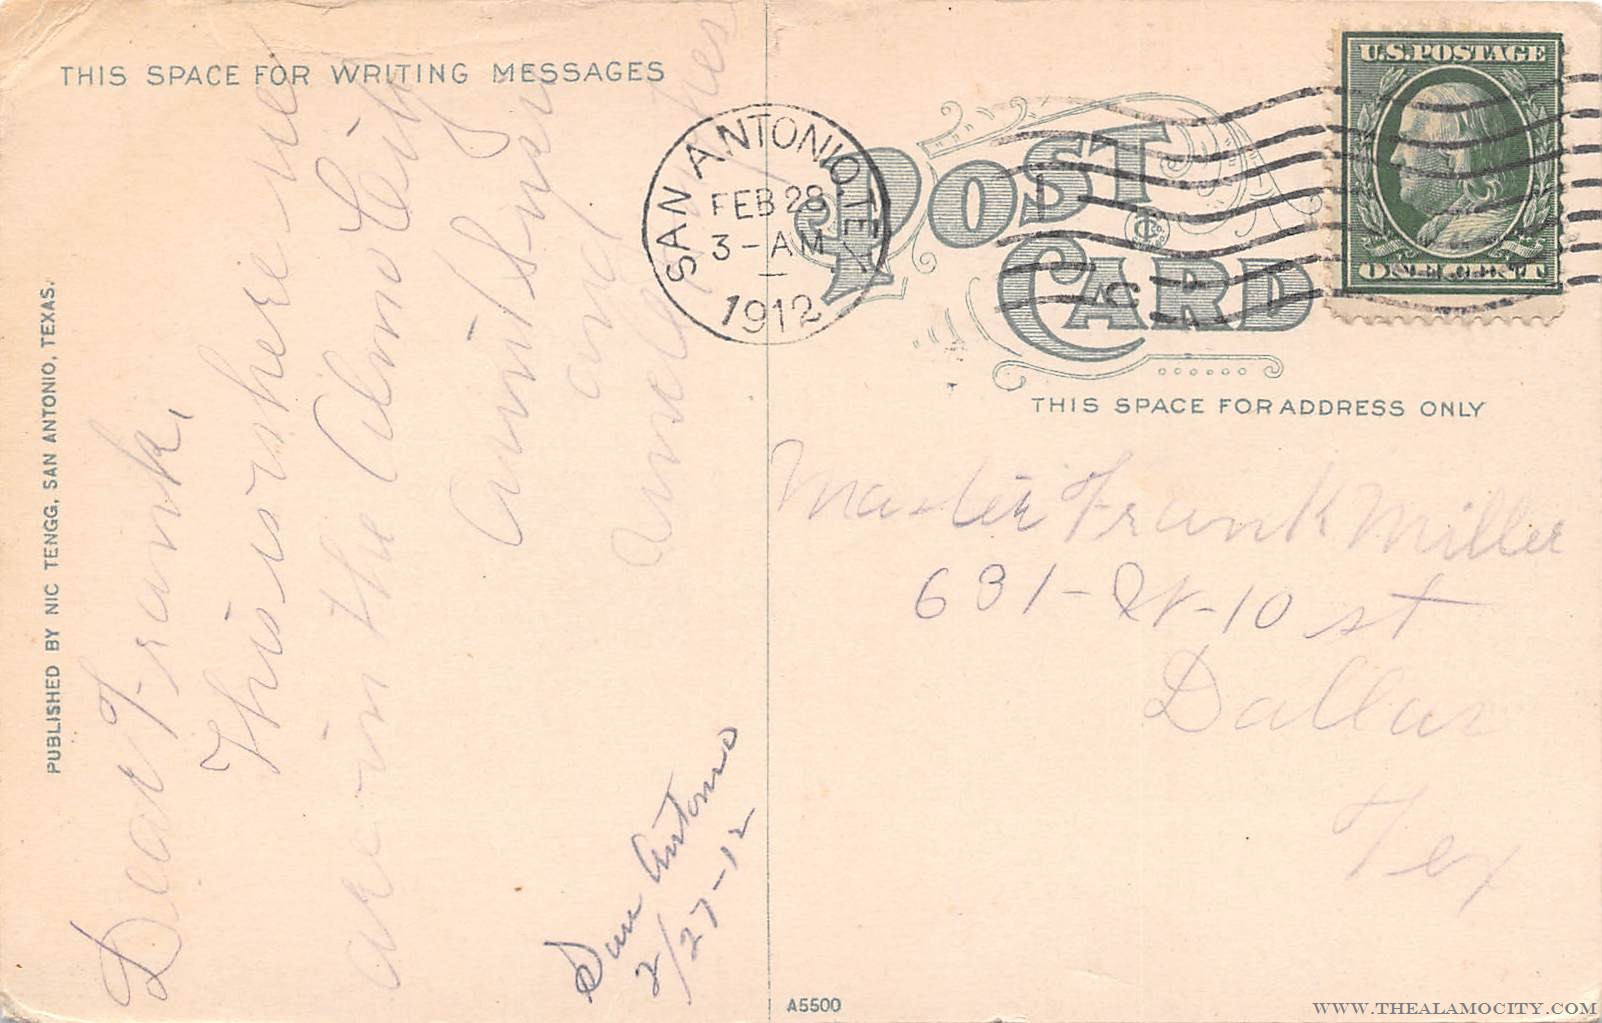 THIS SPACE FOR WRITING MESSAGES
PUBLISHED BY NIC TENGG, SAN ANTONIO, TEXAS.
Dear Frank,
This is where we
are in the Alamo City
Aunt
and
San Antonio
2/27-12
SAN ANTONIO, TEX.
FEB 28
3-AM
1912
POST
CARD
U.S. POSTAGE
ONE CENT
THIS SPACE FOR ADDRESS ONLY
Master Frank Miller
631-W-10 st
Dallas
Tex
A5500
WWW.THEALAMOCITY.COM